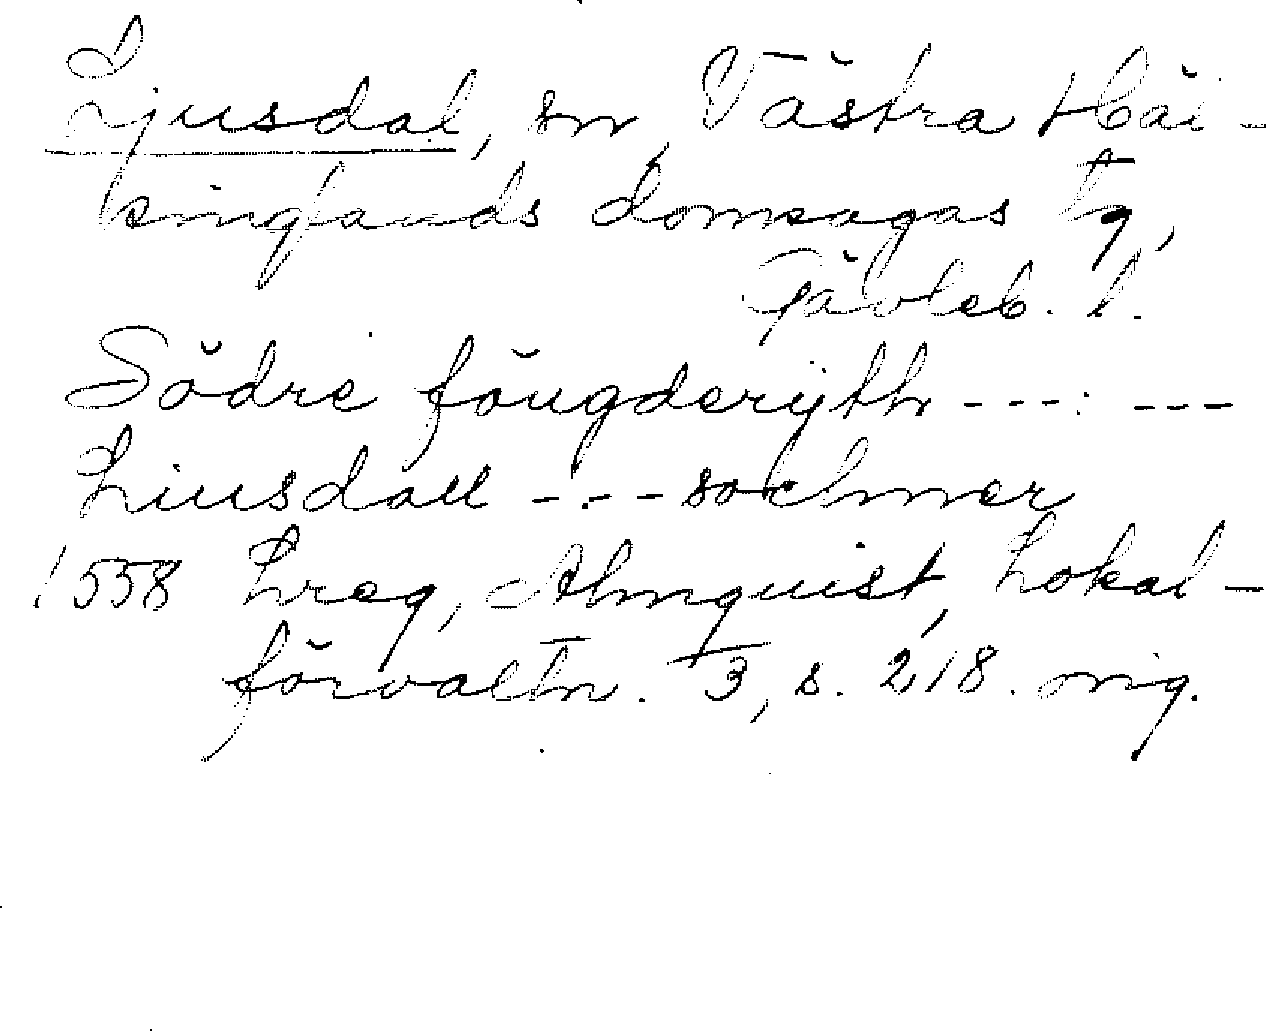 Ljusdal, sn, Västra Häl-
singlands domsagas tg,
Gävleb. l.
Södre föugderijth ---:---
Liusdall -.-- sochner
1558 Lreg, Almquist, Lokal-
förvaltn. 3, s. 218. orig.